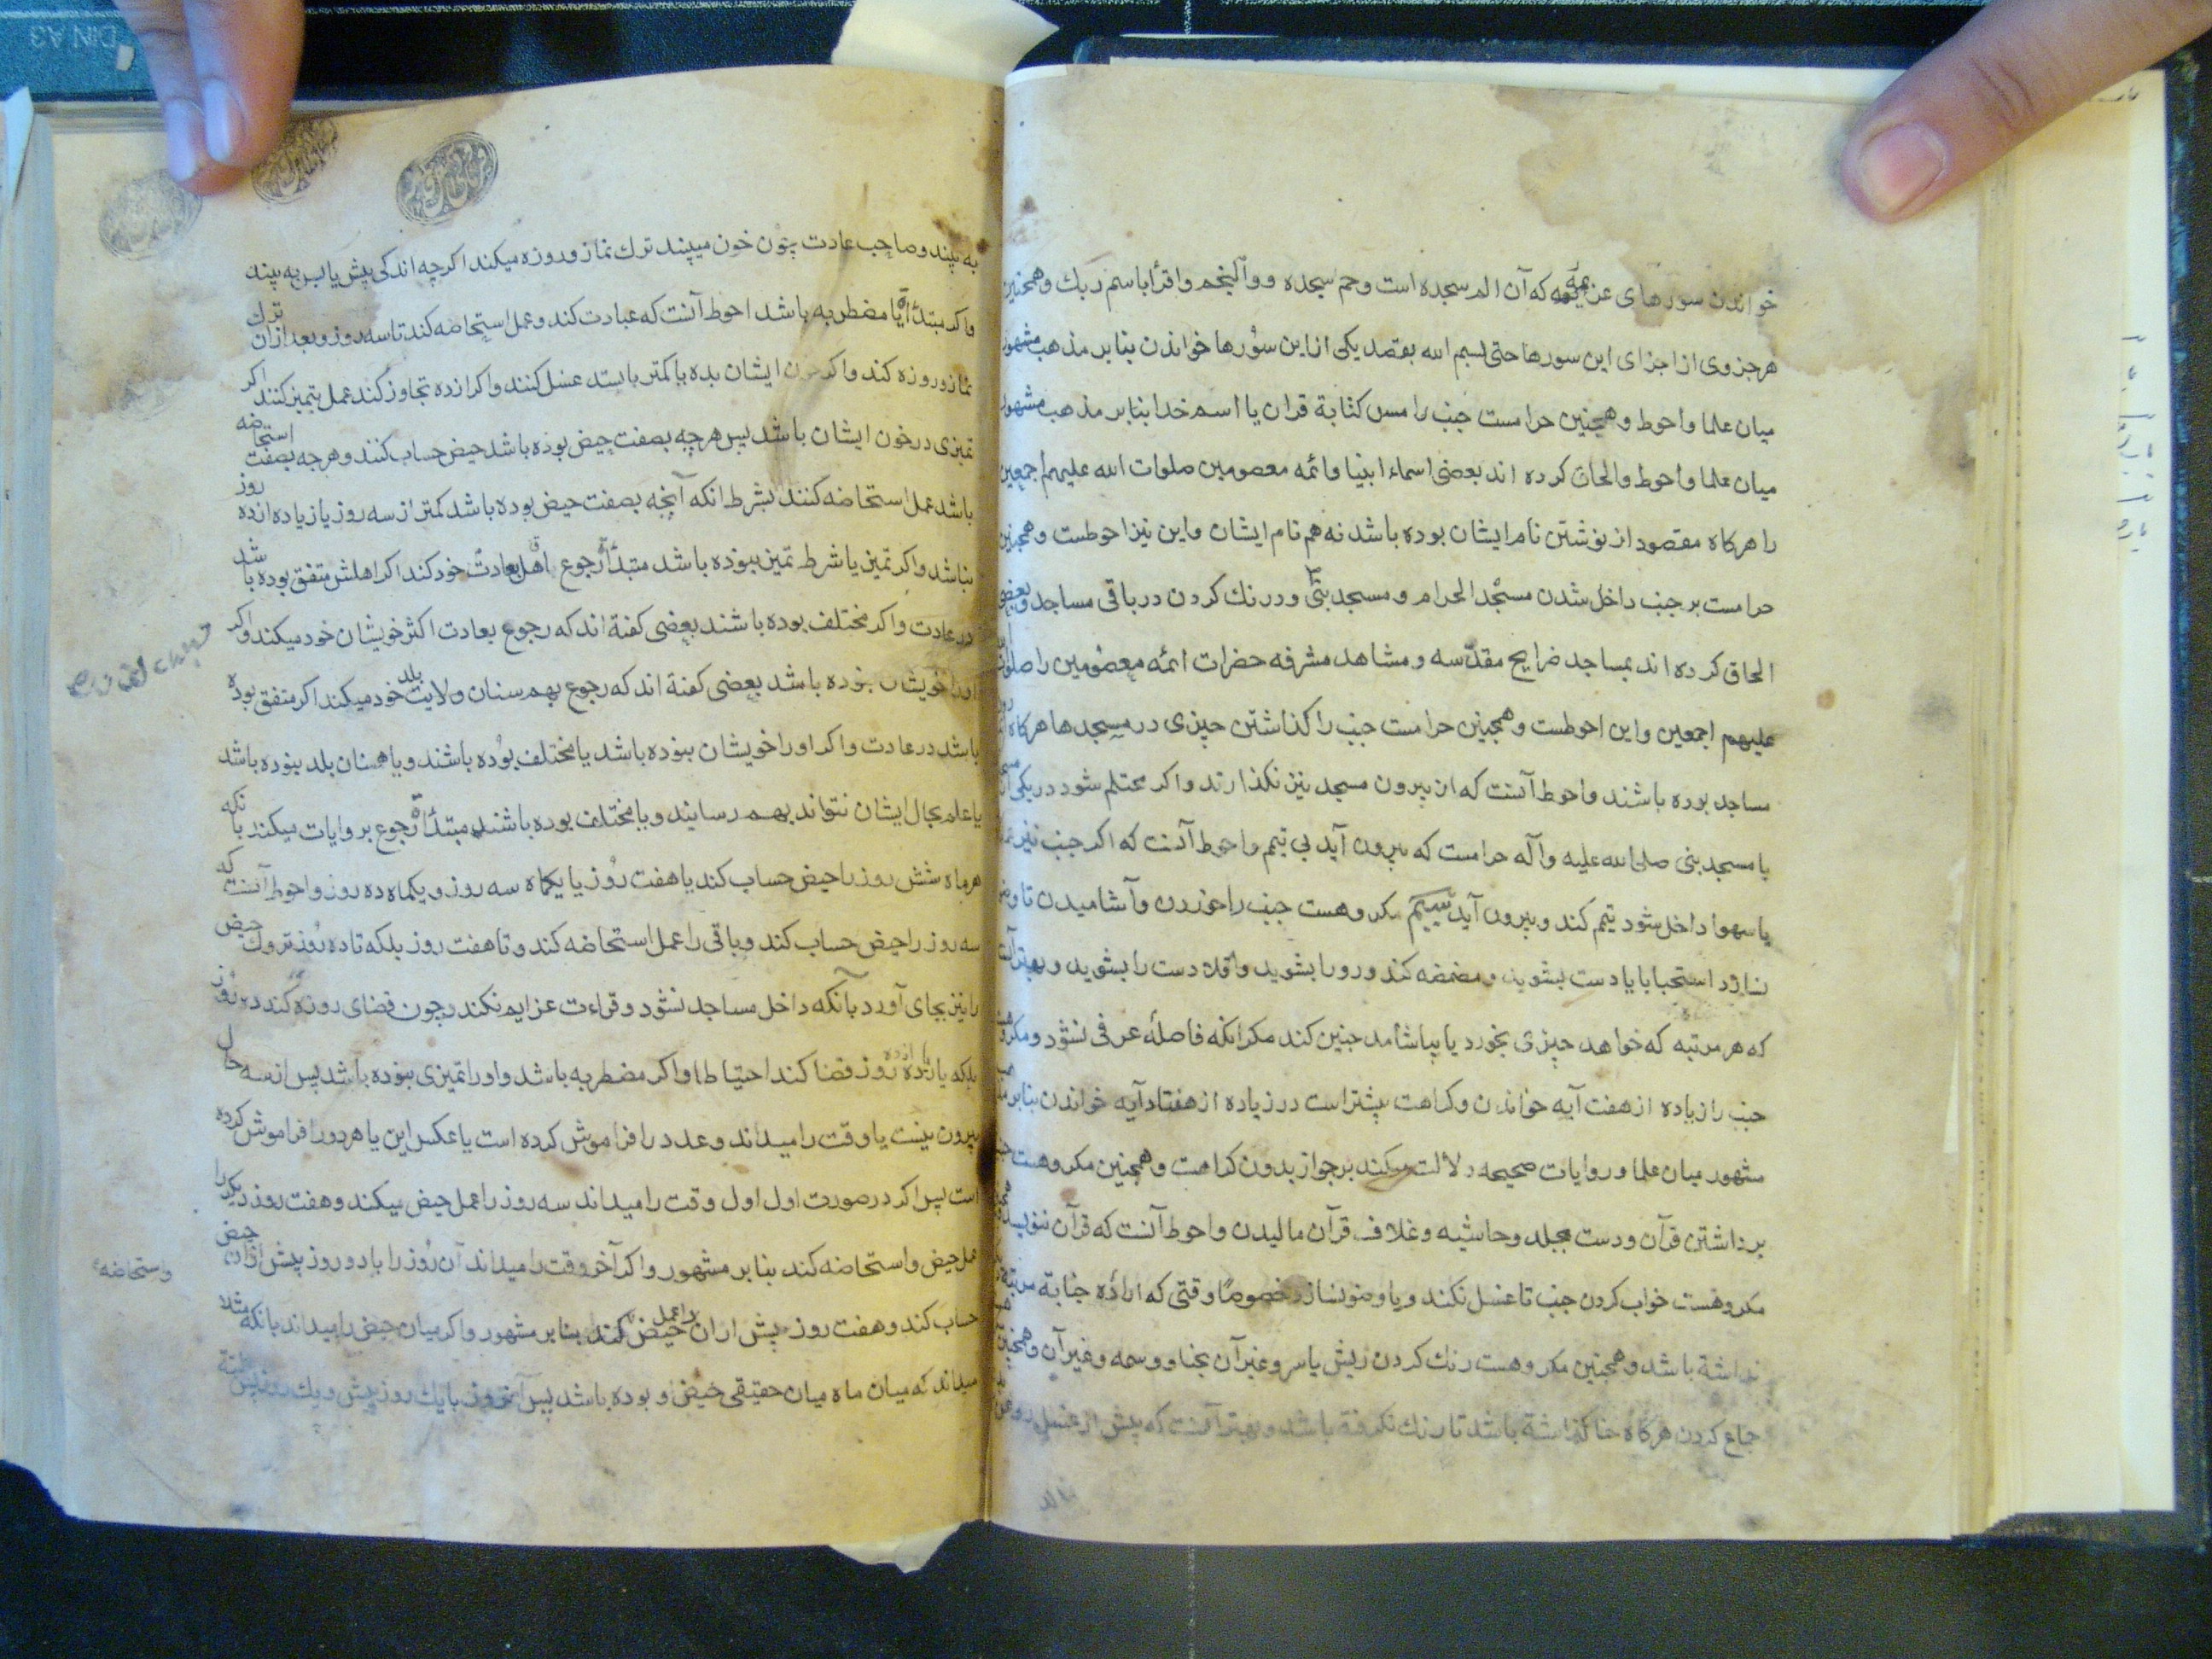 خواندن سورهای عزیمه که آن الم سجده است وحم سجده ووالنجم واقرأ باسم ربك وهمچنین
هر جزوی از اجزای این سورها حتی بسم الله بقصد یکی از این سُورها خواندن بنابر مذهب مشهور
میان علما واحوط وهمچنین حرامست جنب را مس کتابة قران یا اسم خدا بنابر مذهب مشهور
میان علما واحوط والحاق کرده اند بعضی اسماء انبیا وائمه معصومین صلوات الله علیهم اجمعین
را هرکاه مقصود از نوشتن نام ایشان بوده باشد نه هم نام ایشان واین نیز احوطست وهمچنین
حرامست بر جنب داخل شدن مسجد الحرام ومسجد نبی ودرنك کردن در باقی مساجد وبعضی
الحاق کرده اند بمساجد ضرایح مقدّسه ومشاهد مشرفه حضرات ائمه معصومین را صلوات
علیهم اجمعین واین احوطست وهمچنین حرامست جنب را کذاشتن چیزی در مسجدها هرکاه
مساجد بوده باشند واحوط آنست که از بیرون مسجد نیز نکذارند واکر محتلم شود در یکی از
یا مسجد نبی صلی الله علیه وآله حرامست که بیرون آید بی تیمم واحوط آنست که اکر جنب نیز
یا سهوا داخل شود تیمم کند وبیرون آید مکروهست جنب را خوردن وآشامیدن تا وضو
نسازد استحبابا یا دست بشوید ومضمضه کند ورو را بشوید واقلا دست را بشوید وبهتر آنست
که هر مرتبه که خواهد چیزی بخورد یا بیاشامد چنین کند مکر انکه فاصلهٔ عرفی نشود ومکروهست
جنب را زیاده از هفت آیه خواندن وکراهت بیشتر است در زیاده از هفتاد آیه خواندن بنابر
مشهور میان علما وروایات صحیحه دلالت میکند بر جواز بدون کراهت وهمچنین مکروهست
برداشتن قرآن ودست بجلد وحاشیه وغلاف قرآن مالیدن واحوط آنست که قرآن ننویسد
مکروهست خواب کردن جنب تا غسل نکند ویا وضو نسازد خصوصًا وقتی که ارادهٔ جنابة مرتبه
نداشة باشد وهمچنین مکروهست رنك کردن ریش یا سر وغیر آن بحنا ووسمه وغیر آن وهمچنین
جماع کردن هرکاه حنا کذاشة باشد تا رنك نکرفة باشد وبهتر آنست که پیش از غسل
به بیند وصاحب عادت چون خون میبیند ترك نماز وروزه میکند اکر چه اندکی پیش یا پس به بیند
واکر مبتدأة یا مضطربه باشد احوط آنست که عبادت کند وعمل استحاضه کند تا سه روز وبعد ازان ترك
نماز وروزه کند واکر خون ایشان بده یا کمتر بایستد غسل کنند واکر از ده تجاوز کند عمل بتمیز کنند اکر
تمیزی در خون ایشان باشد پس هرچه بصفت حیض بوده باشد حیض حساب کنند وهرچه بصفت استحاضه
باشد عمل استحاضه کنند بشرط انکه آنچه بصفت حیض بوده باشد کمتر از سه روز یا زیاده از ده روز
نباشد واکر تمیز یا شرط تمیز نبوده باشد مبتدأة رجوع باهل بعادت خود کند اکر اهلش متفق بوده باشد
در عادت واکر مختلف بوده باشند بعضی کفتة اند که رجوع بعادت اکثر خویشان خود میکند واکر
اورا خویشان نبوده باشد بعضی کفتة اند که رجوع بهم سنان ولایت بلد خود میکند اکر متفق بوده
باشد در عادت واکر اورا خویشان نبوده باشد یا مختلف بوده باشند ویا همسنان بلد نبوده باشد
یا علم بحال ایشان نتواند بهم رسانیند ویا مختلف بوده باشند مبتدأة رجوع بروایات میکند بآنکه
هرماه شش روز را حیض حساب کند یا هفت روز یا یکماه سه روز ویکماه ده روز واحوط آنست که
سه روز را حیض حساب کند وباقی را عمل استحاضه کند وتا هفت روز بلکه تا ده روز تروك حیض
را نیز بجای آورد بآنکه داخل مساجد نشود وقراءت عزایم نکند وچون قضای روزه کند ده روز
بلکه یازده روز قضا کند احتیاطا واکر مضطربه باشد واورا تمیزی نبوده باشد پس از سه حال
بیرون نیست یا وقت را میداند وعدد را فراموش کرده است یا عکس این یا هردو را فراموش کرده
است پس اکر در صورت اول اول وقت را میداند سه روز را عمل حیض میکند وهفت روز دیکر را
عمل حیض واستحاضه کند بنابر مشهور واکر آخر وقت را میداند آن روز را با دو روز پیش ازان حیض
واستحاضه
حساب کند وهفت روز پیش ازان را عمل حیض کند بنابر مشهور واکر میان حیض را میداند بانکه مثلا
میداند که میان ماه میان حقیقی حیض او بوده باشد پس آنروز با یك روز پیش ویك روز پس